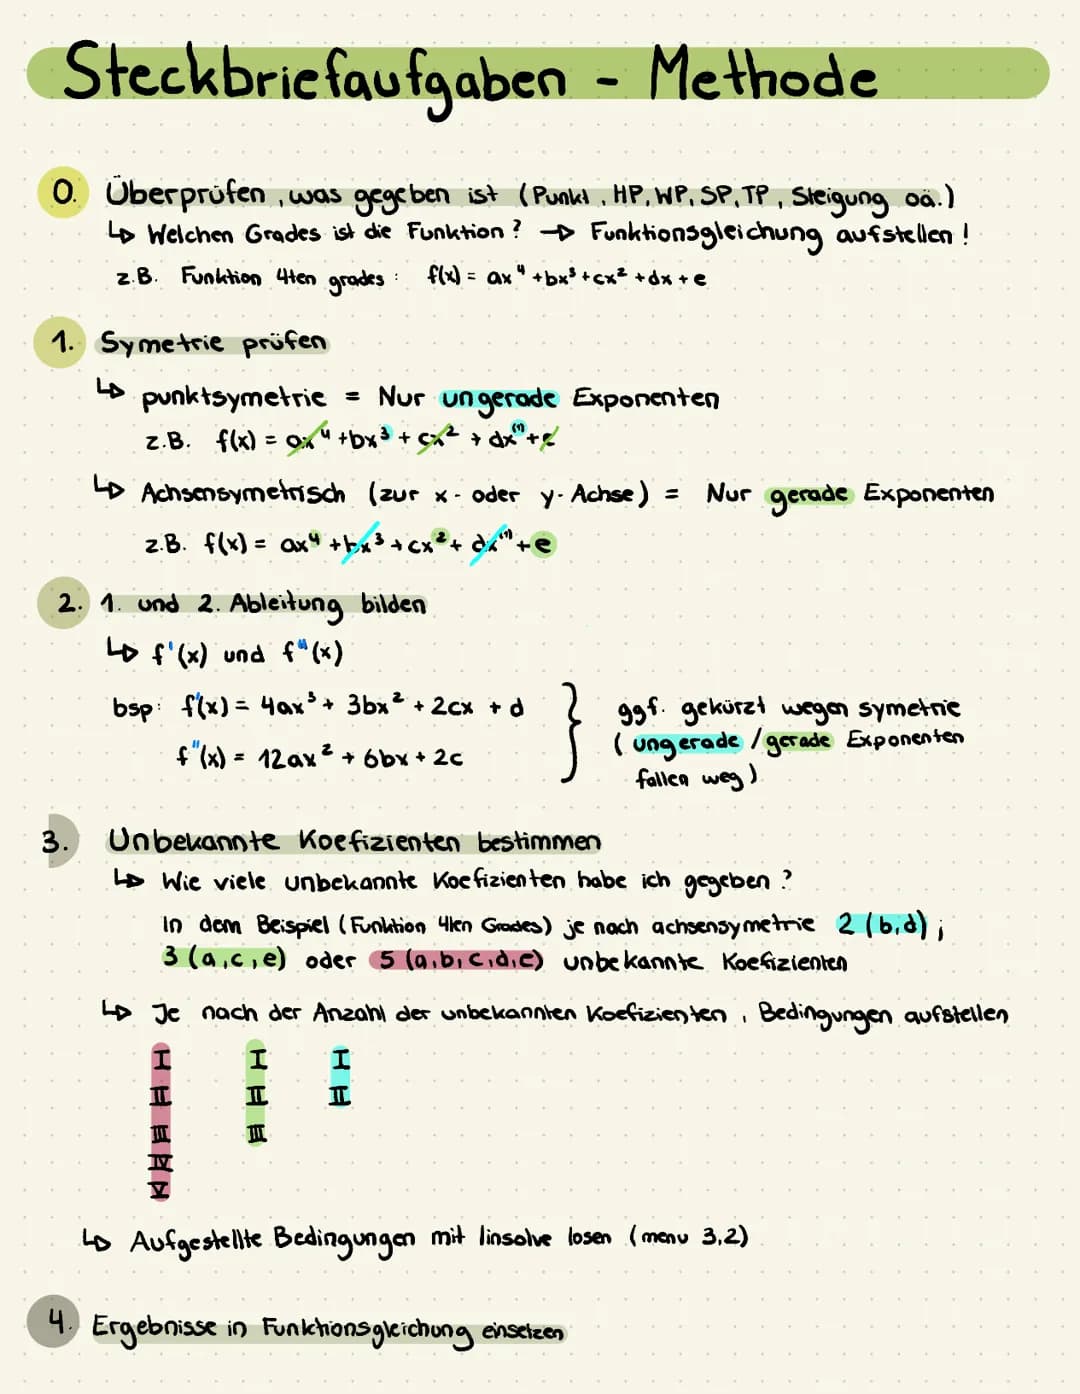 Steckbriefaufgaben - Methode
0. Überprüfen, was gegeben ist (Punkt, HP, WP, SP, TP, Steigung oä.)
↳ Welchen Grades ist die Funktion? → Funktionsgleichung aufstellen!
z.B. Funktion 4ten grades: f(x) = ax⁴ + bx³ + cx² + dx + e
1. Symetrie prüfen
↳ punktsymetrie = Nur ungerade Exponenten
z.B. f(x) = ax⁴ + bx³ + cx² + dx⁽¹⁾ + e
↳ Achsensymetrisch (zur x- oder y-Achse) = Nur gerade Exponenten
z.B. f(x) = ax⁴ + bx³ + cx² + dx⁽¹⁾ + e
2. 1. und 2. Ableitung bilden
↳ f'(x) und f"(x)
bsp: f'(x) = 4ax³ + 3bx² + 2cx + d
f"(x) = 12ax² + 6bx + 2c
} ggf. gekürzt wegen symetrie
(ungerade / gerade Exponenten
fallen weg)
3. Unbekannte Koefizienten bestimmen
↳ Wie viele unbekannte Koefizienten habe ich gegeben?
In dem Beispiel (Funktion 4ten Grades) je nach achsensymetrie 2 (b,d);
3 (a,c,e) oder 5 (a,b,c,d,e) unbekannte Koefizienten
↳ Je nach der Anzahl der unbekannten Koefizienten, Bedingungen aufstellen
I I I
II II II
III III
IV
V
↳ Aufgestellte Bedingungen mit linsolve losen (menu 3,2)
4. Ergebnisse in Funktionsgleichung einsetzen